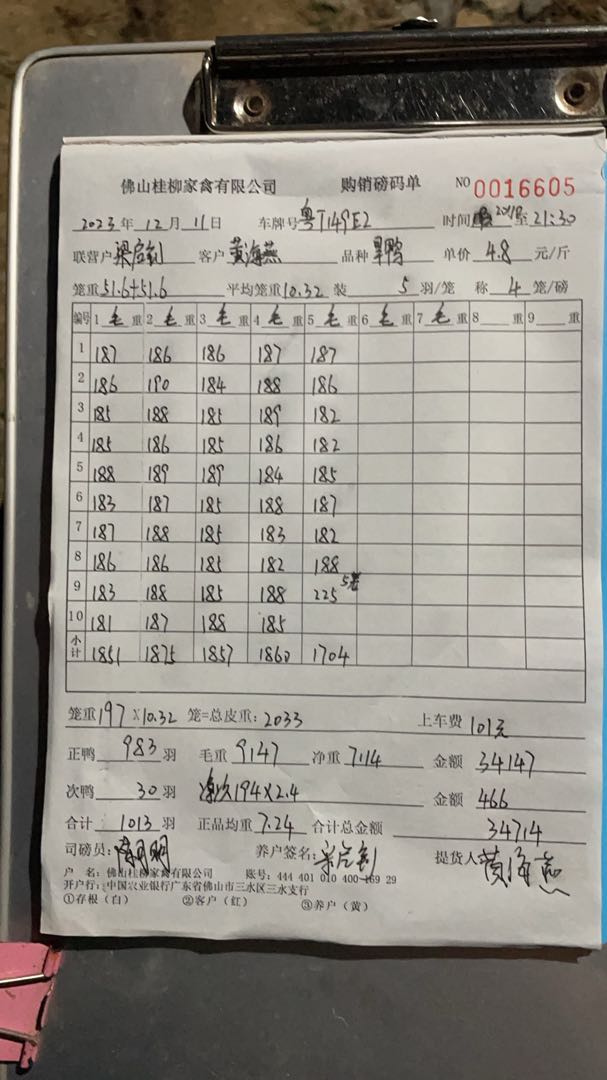 佛山桂柳家禽有限公司 购销磅码单 NO 0016605
2023年12月11日 车牌号 粤T149E2 时间 20:18 至 21:30
联营户 梁启钊 客户 黄海燕 品种 旱鸭 单价 4.8 元/斤
笼重 51.6+51.6 平均笼重 10.32 装 5 羽/笼 称 4 笼/磅
编号 1 毛 重 2 毛 重 3 毛 重 4 毛 重 5 毛 重 6 毛 重 7 毛 重 8 重 9 重
1 187 186 186 187 187
2 186 190 184 188 186
3 185 188 185 189 182
4 185 186 185 186 182
5 188 189 189 184 185
6 183 187 185 188 187
7 187 188 185 183 182
8 186 186 185 182 188
9 183 188 185 188 225 5笼
10 181 187 188 185
小计 1851 1875 1857 1860 1704
笼重 197 X10.32 笼=总皮重: 2033 上车费 101元
正鸭 983 羽 毛重 9147 净重 7114 金额 34147
次鸭 30 羽 194×2.4 金额 466
合计 1013 羽 正品均重 7.24 合计总金额 34714
司磅员: 养户签名: 梁启钊 提货人 黄海燕
户 名: 佛山桂柳家禽有限公司 账号: 444 401 010 400 169 29
开户行: 中国农业银行广东省佛山市三水区三水支行
①存根（白） ②客户（红） ③养户（黄）